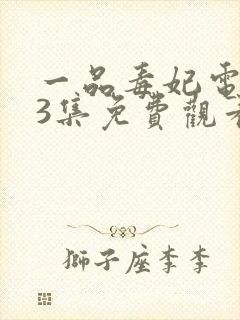 一品毒妃電
3集免費觀看
獅子座李李